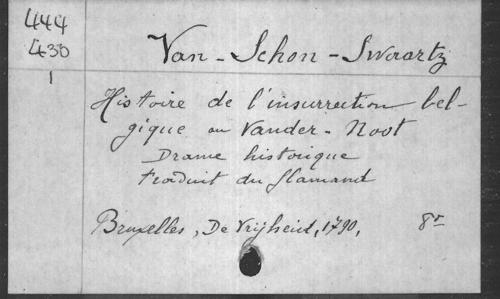 444
430
1
Van-Schon-Swaartz
Histoire de l'insurrection bel-
gique ou Vander-Noot
Drame historique
traduit du flamand
Bruxelles, De Vrijheid, 1790, 8º